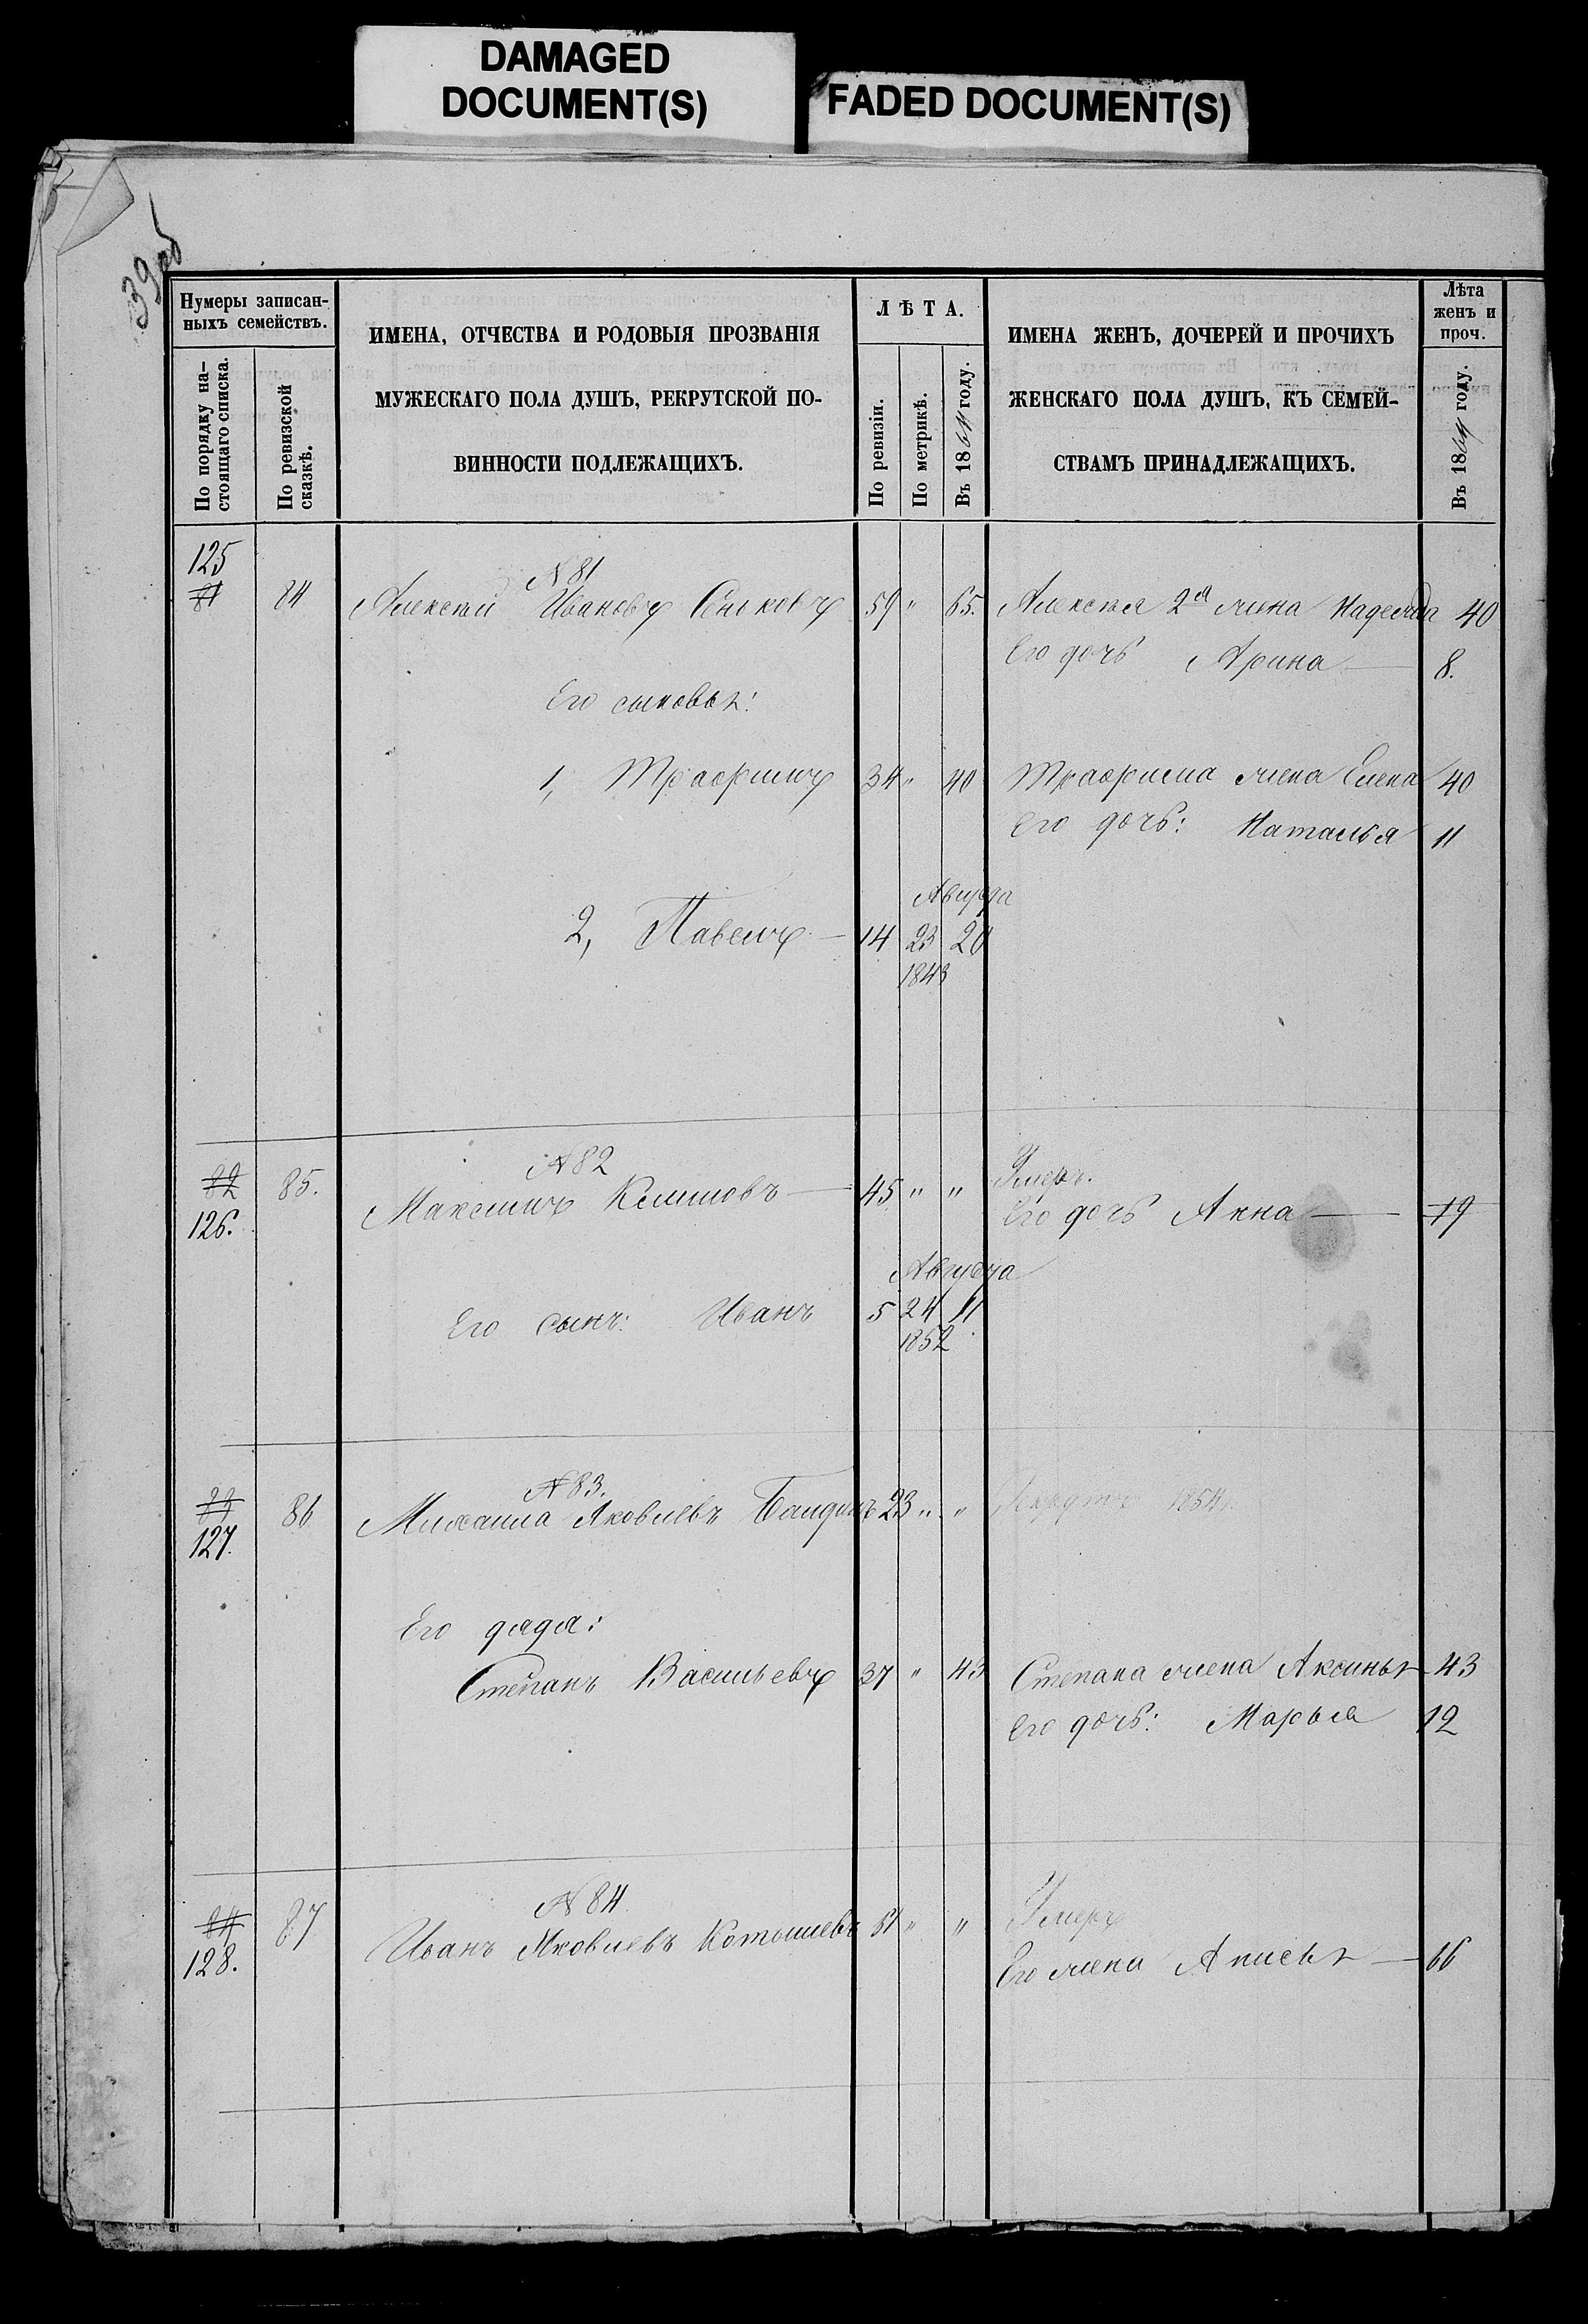 DAMAGED
DOCUMENT(S)
FADED DOCUMENT(S)
39 об
Нумеры записан-
ныхъ семействъ.
По порядку на-
стоящаго списка.
По ревизской
сказкѣ.
ИМЕНА, ОТЧЕСТВА И РОДОВЫЯ ПРОЗВАНІЯ
МУЖЕСКАГО ПОЛА ДУШЪ, РЕКРУТСКОЙ ПО-
ВИННОСТИ ПОДЛЕЖАЩИХЪ.
ЛѢТА.
По ревизіи.
По метрикѣ.
Въ 1864 году.
ИМЕНА ЖЕНЪ, ДОЧЕРЕЙ И ПРОЧИХЪ
ЖЕНСКАГО ПОЛА ДУШЪ, КЪ СЕМЕЙ-
СТВАМЪ ПРИНАДЛЕЖАЩИХЪ.
Лѣта
женъ и
проч.
Въ 1864 году.
125
№ 81
81 84 Алексѣй Ивановъ Сеньковъ 59 " 65. Алексѣя 2я жена Надежда 40
Его дочь Арина 8.
Его сыновья:
1, Трофимъ 34 " 40 Трофима жена Елена 40
Его дочь: Наталья 11
Августа
2, Павелъ 14 23 20
1843
№ 82
82 85. Максимъ Климовъ 45 " " Умеръ.
126. Его дочь Анна 19
Августа
Его сынъ: Иванъ 5 24 11
1852
№ 83.
83 86 Михаила Яковлевъ 23 " " Рекрутъ 1854
127.
Его дядя:
Степанъ Васильевъ 37 " 43 Степана жена Аксинья 43
Его дочь: Марья 12
№ 84
84 87 Иванъ Яковлевъ 61 " " Умеръ
128. Его жена Анисья 66